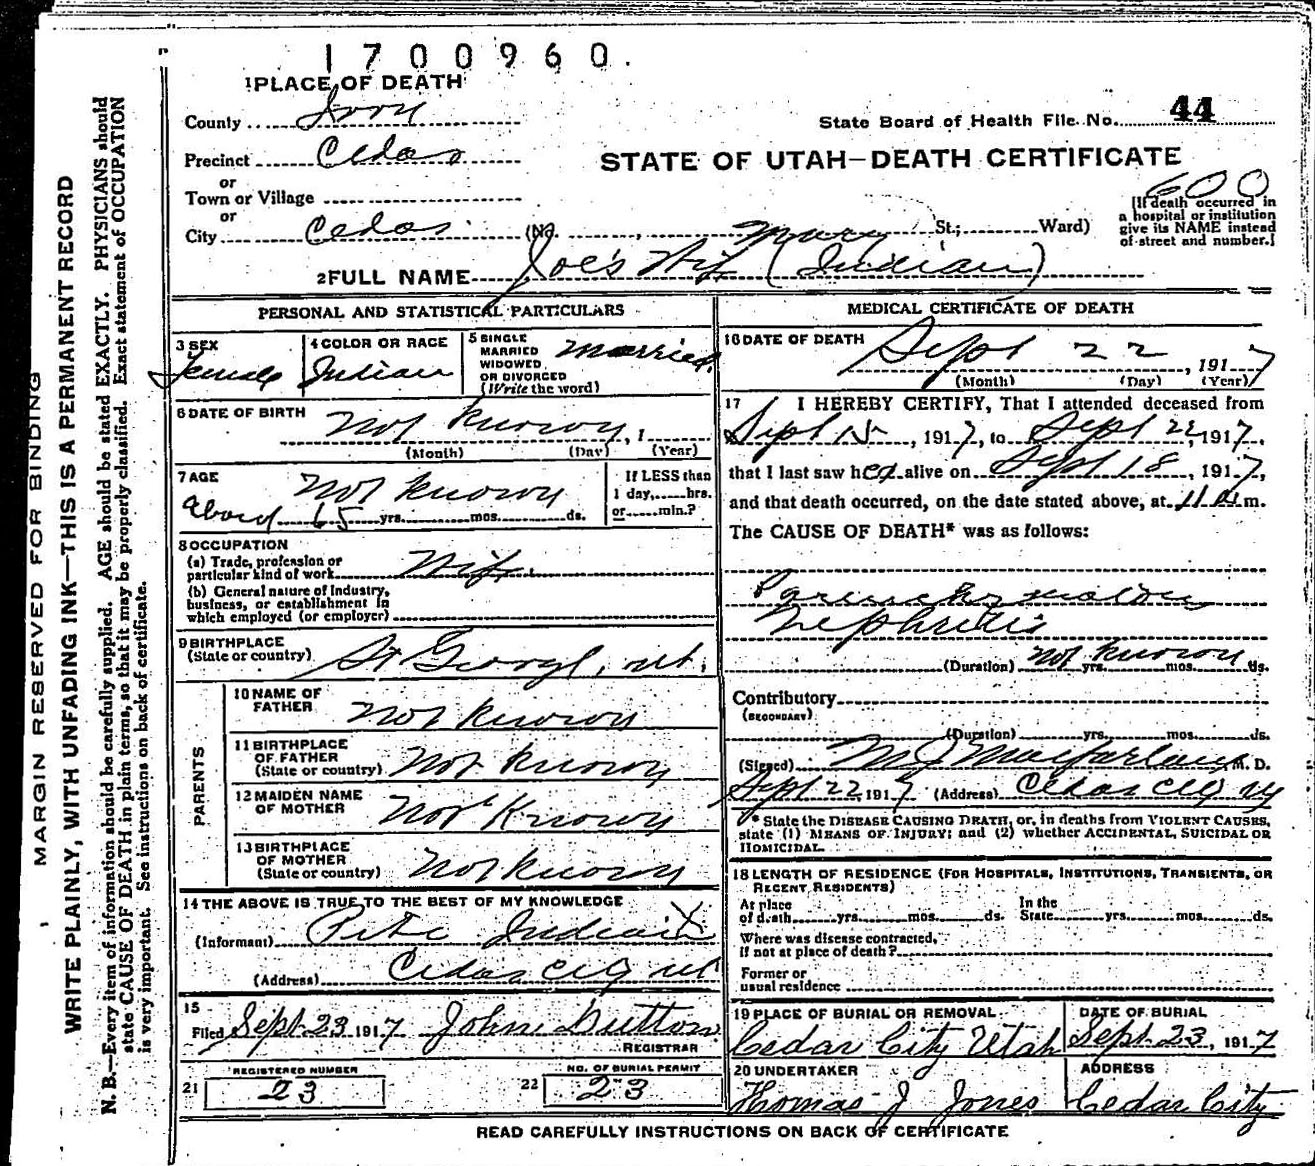 1700960.
1 PLACE OF DEATH
County Iron
State Board of Health File No. 44
Precinct Cedar
STATE OF UTAH—DEATH CERTIFICATE
or
Town or Village
600
or
City Cedar (No. St.; Ward)
[If death occurred in a hospital or institution give its NAME instead of street and number.]
Mary
2 FULL NAME Joe's Wife (Indian)
PERSONAL AND STATISTICAL PARTICULARS
3 SEX
Female
4 COLOR OR RACE
Indian
5 SINGLE
MARRIED
WIDOWED
OR DIVORCED
(Write the word)
Married
6 DATE OF BIRTH
Not Known, 1
(Month) (Day) (Year)
7 AGE
Not Known
About 65 yrs. mos. ds.
If LESS than
1 day, hrs.
or min.?
8 OCCUPATION
(a) Trade, profession or
particular kind of work Wife.
(b) General nature of Industry,
business, or establishment in
which employed (or employer)
9 BIRTHPLACE
(State or country) St George, Ut.
PARENTS
10 NAME OF
FATHER Not Known
11 BIRTHPLACE
OF FATHER
(State or country) Not Known
12 MAIDEN NAME
OF MOTHER Not Known
13 BIRTHPLACE
OF MOTHER
(State or country) Not Known
14 THE ABOVE IS TRUE TO THE BEST OF MY KNOWLEDGE
(Informant) Pete Indian X
(Address) Cedar City Ut
15
Filed Sept. 23 1917 John
REGISTRAR
21 REGISTERED NUMBER
23
22 NO. OF BURIAL PERMIT
23
MEDICAL CERTIFICATE OF DEATH
16 DATE OF DEATH
Sept 22, 1917
(Month) (Day) (Year)
17 I HEREBY CERTIFY, That I attended deceased from
Sept 15, 1917, to Sept 22, 1917,
that I last saw her alive on Sept 18, 1917,
and that death occurred, on the date stated above, at 11 a.m.
The CAUSE OF DEATH* was as follows:
Parenchymatous
Nephritis
(Duration) Not Known yrs. mos. ds.
Contributory
(SECONDARY)
(Duration) yrs. mos. ds.
(Signed) M J Macfarlane, M. D.
Sept 22, 1917 (Address) Cedar City Ut
* State the DISEASE CAUSING DEATH, or, in deaths from VIOLENT CAUSES,
state (1) MEANS OF INJURY; and (2) whether ACCIDENTAL, SUICIDAL OR
HOMICIDAL.
18 LENGTH OF RESIDENCE (FOR HOSPITALS, INSTITUTIONS, TRANSIENTS, OR
RECENT RESIDENTS)
At place
of death yrs. mos. ds.
In the
State yrs. mos. ds.
Where was disease contracted,
if not at place of death?
Former or
usual residence
19 PLACE OF BURIAL OR REMOVAL
Cedar City Utah
DATE OF BURIAL
Sept. 23, 1917
20 UNDERTAKER
Thomas J Jones
ADDRESS
Cedar City
READ CAREFULLY INSTRUCTIONS ON BACK OF CERTIFICATE
MARGIN RESERVED FOR BINDING
WRITE PLAINLY, WITH UNFADING INK—THIS IS A PERMANENT RECORD
N. B.—Every item of information should be carefully supplied. AGE should be stated EXACTLY. PHYSICIANS should
state CAUSE OF DEATH in plain terms, so that it may be properly classified. Exact statement of OCCUPATION
is very important. See instructions on back of certificate.